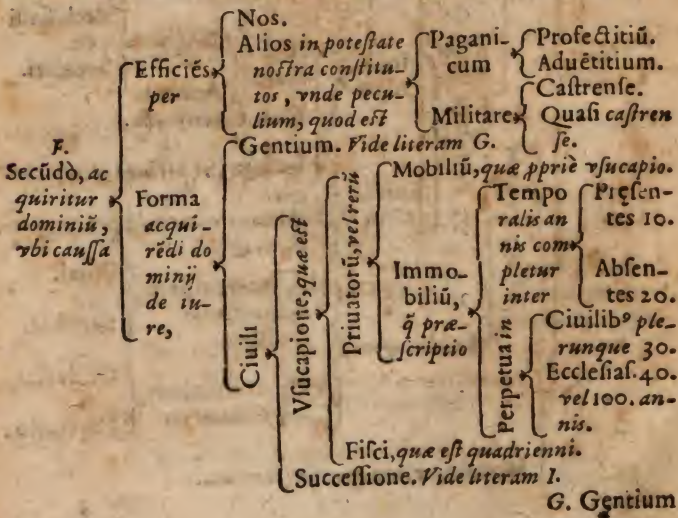 F.
Secũdò, ac
quiritur
dominiũ,
vbi cauſſa
Efficiẽs
per
Nos.
Alios in poteſtate
noſtra conſtitu-
tos, vnde pecu-
lium, quod eſt
Pagani-
cum
Profectitiũ.
Aduẽtitium.
Militare
Caſtrenſe.
Quaſi caſtren
ſe.
Forma
acqui-
rẽdi do
minij
de iu-
re,
Gentium. Vide literam G.
Ciuili
Vſucapione, quæ eſt
Priuatorũ, vel rerũ
Mobiliũ, quæ ꝓpriè vſucapio.
Immo-
biliũ,
q̃ præ-
ſcriptio
Tempo
ralis an
nis com
pletur
inter
Pręſen-
tes 10.
Abſen-
tes 20.
Perpetua in
Ciuilibꝰ ple-
runque 30.
Eccleſiaſ. 40.
vel 100. an-
nis.
Fiſci, quæ eſt quadrienni.
Succeſſione. Vide literam I.
G. Gentium